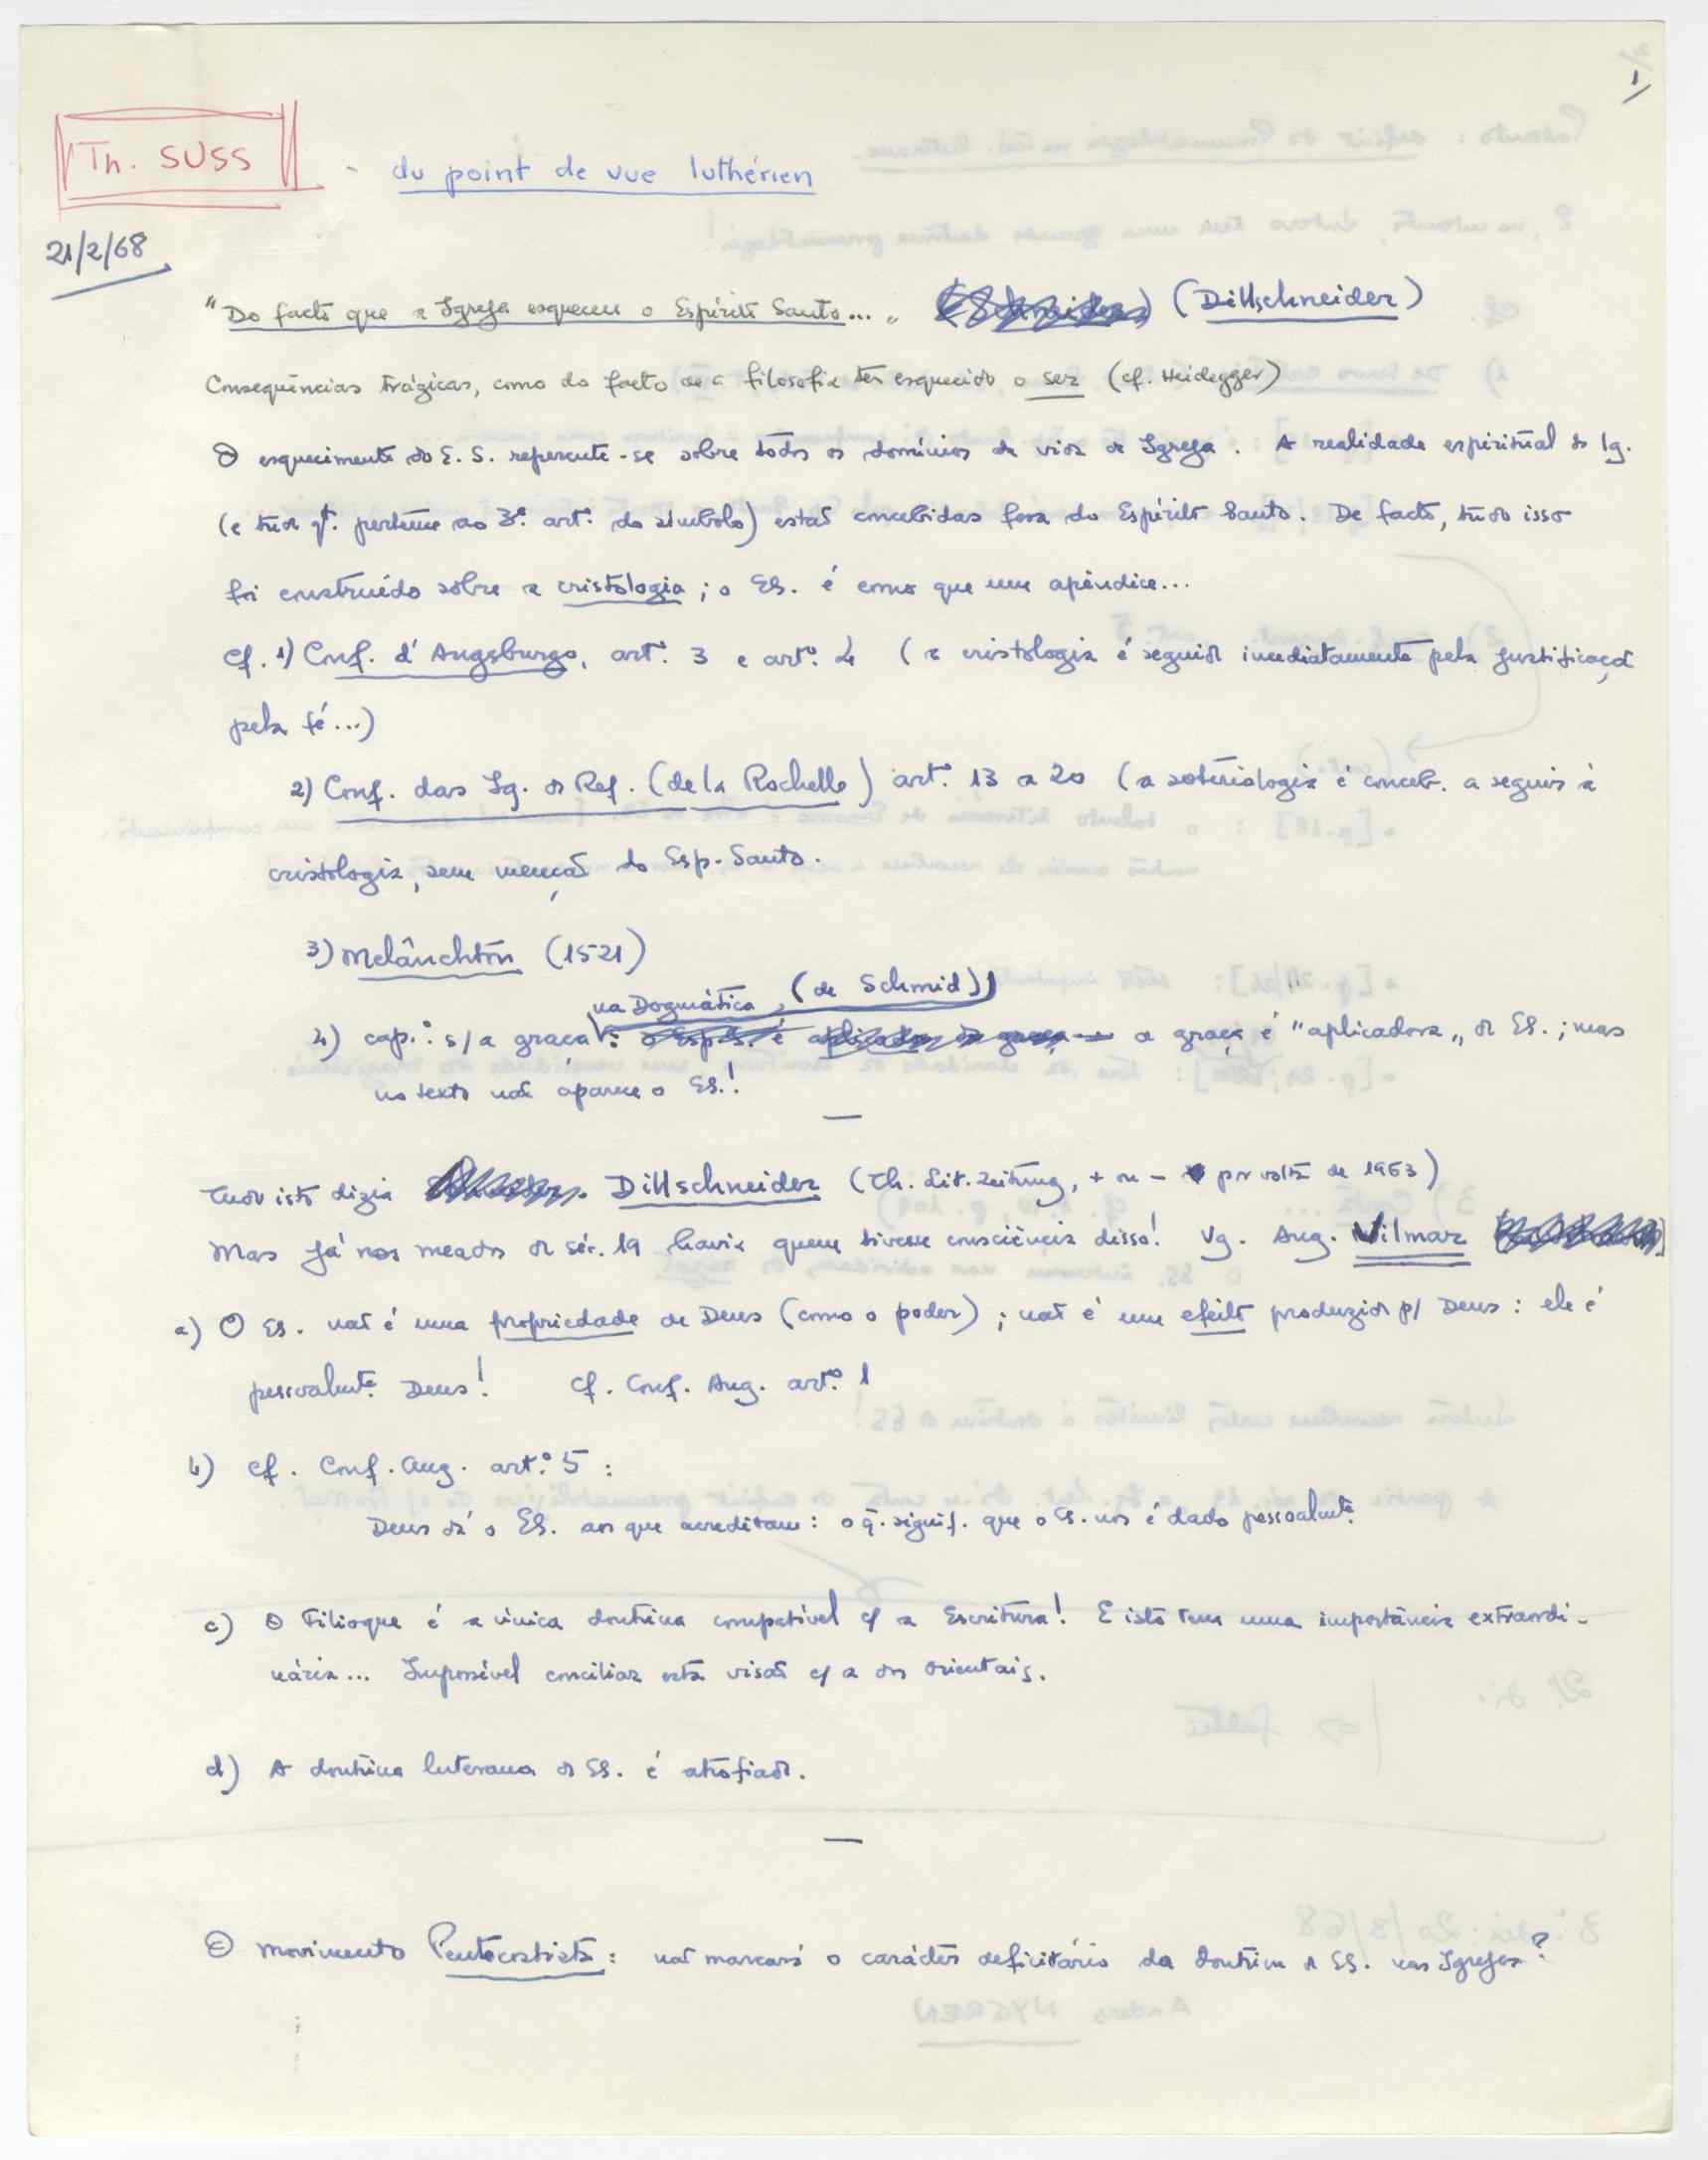 1
Th. SUSS - du point de vue luthérien
21/2/68
"Do facto que a Igreja esqueceu o Espírito Santo... „ (Dillschneider)
Consequências trágicas, como do facto de a filosofia ter esquecido o ser (cf. Heidegger)
O esquecimento do E.S. repercute-se sobre todos os domínios da vida da Igreja. A realidade espiritual da Ig.
(e tudo qt. pertence ao 3º. artº. do símbolo) estão concebidas fora do Espírito Santo. De facto, tudo isso
foi construído sobre a cristologia; o ES. é como que um apêndice...
Cf. 1) Conf. d'Augsburgo, artº. 3 e artº. 4 (a cristologia é seguida imediatamente pela justificação
pela fé...)
2) Conf. das Ig. da Ref. (de la Rochelle) artº 13 a 20 (a soteriologia é conceb. a seguir à
cristologia, sem menção do Esp. Santo.
3) Melânchton (1521)
na Dogmática, (de Schmid))
4) cap.º: s/ a graça: a graça é "aplicadora„ do ES.; mas
no texto não aparece o ES.!
Tudo isto dizia Dillschneider (Th. Lit. Zeitung, + ou - por volta de 1963)
Mas já nos meados do séc. 19 havia quem tivesse consciência disso! Vg. Aug. Vilmar
a) O ES. não é uma propriedade de Deus (como o poder); não é um efeito produzido p/ Deus: ele é
pessoalmte. Deus! Cf. Conf. Aug. artº 1
b) Cf. Conf. Aug. artº. 5 :
Deus dá o ES. aos que acreditam: o q. signif. que o ES. nos é dado pessoalmte.
c) O Filioque é a única doutrina compatível c/ a Escritura! E isto tem uma importância extraordi-
nária... Impossível conciliar esta visão c/ a dos Orientais.
d) A doutrina luterana do ES. é atrofiada.
O movimento Pentecostista: não marcará o carácter deficitário da doutrina do ES. nas Igrejas?